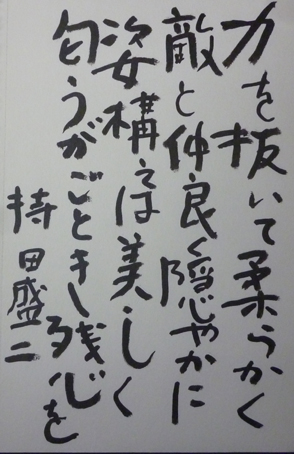 力を抜いて柔らかく
敵と仲良く隠やかに
姿構えは美しく
匂うがごとき残心を
持田盛二